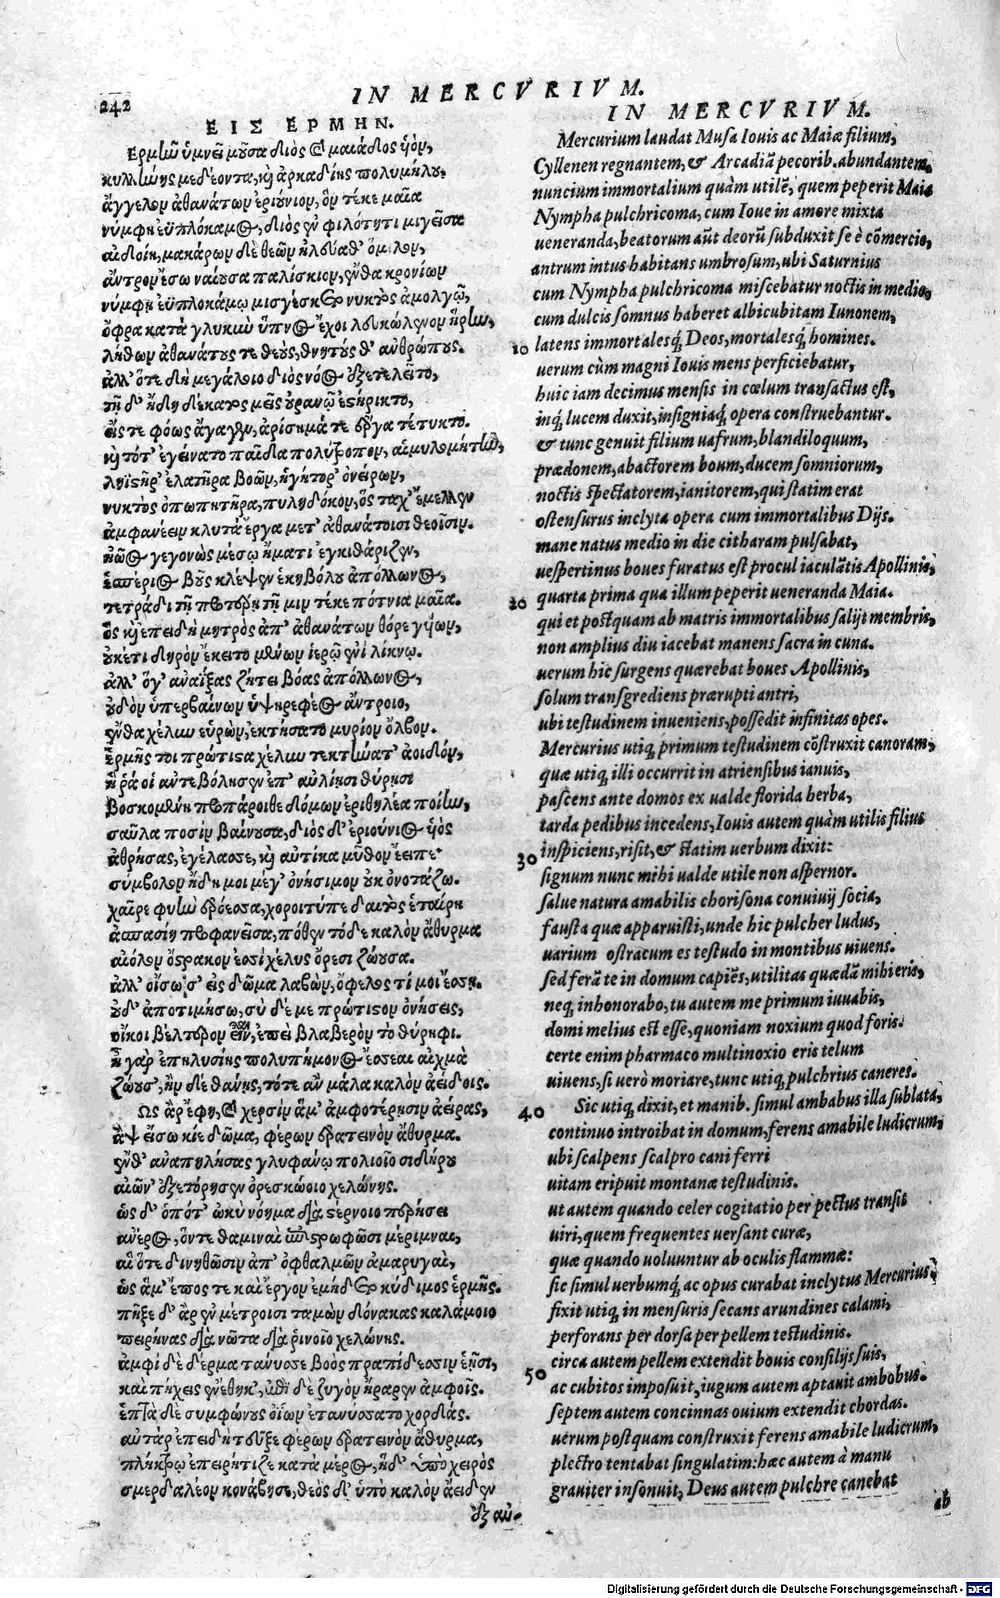 242
IN MERCVRIVM.
ΕΙΣ ΕΡΜΗΝ.
Ερμῆν ὑμνεῖ μοῦσα διὸς καὶ μαιάδος ὑὸν,
κυλλήνης μεδέοντα, καὶ ἀρκαδίης πολυμήλου,
ἄγγελον ἀθανάτων ἐριούνιον, ὃν τέκε μαῖα
νύμφη ἐϋπλόκαμος, διὸς ἐν φιλότητι μιγεῖσα
αἰδοίη, μακάρων δὲ θεῶν ἠλεύαθ' ὅμιλον,
ἄντρον ἔσω ναίουσα παλίσκιον, ἔνθα κρονίων
νύμφῃ ἐϋπλοκάμῳ μισγέσκετο νυκτὸς ἀμολγῷ,
ὄφρα κατὰ γλυκὺς ὕπνος ἔχοι λευκώλενον ἥρην,
λήθων ἀθανάτους τε θεοὺς, θνητούς θ' ἀνθρώπους.
ἀλλ' ὅτε δὴ μεγάλοιο διὸς νόος ἐξετελεῖτο,
τῇ δ' ἤδη δέκατος μεὶς οὐρανῷ ἐστήρικτο,
εἴς τε φόως ἄγαγεν, ἀρίσημά τε ἔργα τέτυκτο.
καὶ τότ' ἐγείνατο παῖδα πολύτροπον, αἱμυλομήτην,
ληϊστῆρ' ἐλατῆρα βοῶν, ἡγήτορ' ὀνείρων,
νυκτὸς ὀπωπητῆρα, πυληδόκον, ὃς τάχ' ἔμελλεν
ἀμφανέειν κλυτὰ ἔργα μετ' ἀθανάτοισι θεοῖσιν.
ἠῷος γεγονὼς μέσῳ ἤματι ἐγκιθάριζεν,
ἑσπέριος βοῦς κλέψεν ἑκηβόλου ἀπόλλωνος,
τετράδι τῇ προτέρῃ τῇ μιν τέκε πότνια μαῖα.
ὃς καὶ ἐπειδὴ μητρὸς ἀπ' ἀθανάτων θόρε γυίων,
οὐκέτι δηρὸν ἔκειτο μένων ἱερῷ ἐνὶ λίκνῳ.
ἀλλ' ὅγ' ἀναΐξας ζήτει βόας ἀπόλλωνος,
οὐδὸν ὑπερβαίνων ὑψηρεφέος ἄντροιο,
ἔνθα χέλυν εὑρὼν, ἐκτήσατο μυρίον ὄλβον.
ἑρμῆς τοι πρώτιστα χέλυν τεκτήνατ' ἀοιδὸν,
ἥ ῥά οἱ ἀντεβόλησεν ἐπ' αὐλίησι θύρῃσι
βοσκομένη προπάροιθε δόμων ἐριθηλέα ποίην,
σαῦλα ποσὶν βαίνουσα, διὸς δ' ἐριούνιος ὑὸς
ἀθρήσας, ἐγέλασσε, καὶ αὐτίκα μῦθον ἔειπε·
σύμβολον ἤδη μοι μέγ' ὀνήσιμον οὐκ ὀνοτάζω.
χαῖρε φυὴν ἐρόεσσα, χοροιτύπε δαιτὸς ἑταίρη
ἀσπασίη προφανεῖσα, πόθεν τόδε καλὸν ἄθυρμα
αἰόλον ὄστρακον ἐσσὶ χέλυς ὄρεσι ζώουσα.
ἀλλ' οἴσω σ' εἰς δῶμα λαβὼν, ὄφελος τί μοι ἔσση.
οὐδ' ἀποτιμήσω, σὺ δέ με πρώτιστον ὀνήσεις,
οἴκοι βέλτερον εἶναι, ἐπεὶ βλαβερὸν τὸ θύρηφι.
ἦ γὰρ ἐπηλυσίης πολυπήμονος ἔσσεαι αἰχμὰ
ζώουσ', ἢν δὲ θάνῃς, τότε ἂν μάλα καλὸν ἀείδοις.
Ως ἂρ ἔφη, καὶ χερσὶν ἅμ' ἀμφοτέρησιν ἀείρας,
ἂψ εἴσω κίε δῶμα, φέρων ἐρατεινὸν ἄθυρμα.
ἔνθ' ἀναπηλήσας γλυφάνῳ πολιοῖο σιδήρου
αἰῶν' ἐξετόρησεν ὀρεσκώοιο χελώνης.
ὡς δ' ὁπότ' ὠκὺ νόημα διὰ στέρνοιο περήσει
ἀνέρος, ὅντε θαμιναὶ ἐπιστρωφῶσι μέριμναι,
αἱ ὅτε δινηθῶσιν ἀπ' ὀφθαλμῶν ἀμαρυγαὶ,
ὡς ἅμ' ἔπος τε καὶ ἔργον ἐμήδετο κύδιμος ἑρμῆς.
πῆξε δ' ἂρ ἐν μέτροισι ταμὼν δόνακας καλάμοιο
πειρήνας διὰ νῶτα διὰ ῥινοῖο χελώνης.
ἀμφὶ δὲ δέρμα τάνυσσε βοὸς πραπίδεσσιν ἑῇσι,
καὶ πήχεις ἐνέθηκ', ἐπὶ δὲ ζυγὸν ἤραρεν ἀμφοῖς.
ἑπτὰ δὲ συμφώνους ὀΐων ἐτανύσσατο χορδάς.
αὐτὰρ ἐπειδὴ τεῦξε φέρων ἐρατεινὸν ἄθυρμα,
πλήκτρῳ ἐπειρήτιζε κατὰ μέρος, ἡδ' ὑπὸ χειρὸς
σμερδαλέον κονάβησε, θεὸς δ' ὑπὸ καλὸν ἄειδεν
ἐξ αὐ-
IN MERCVRIVM.
Mercurium laudat Musa Iouis ac Maiæ filium,
Cyllenen regnantem, & Arcadiã pecorib. abundantem,
nuncium immortalium quàm utilẽ, quem peperit Maia
Nympha pulchricoma, cum Ioue in amore mixta
ueneranda, beatorum aũt deorũ subduxit se è cõmercio,
antrum intus habitans umbrosum, ubi Saturnius
cum Nympha pulchricoma miscebatur noctis in medio,
cum dulcis somnus haberet albicubitam Iunonem,
10 latens immortalesq́; Deos, mortalesq́; homines.
uerum cùm magni Iouis mens perficiebatur,
huic iam decimus mensis in cœlum transactus est,
inq́; lucem duxit, insigniaq́; opera construebantur.
& tunc genuit filium uafrum, blandiloquum,
prædonem, abactorem boum, ducem somniorum,
noctis spectatorem, ianitorem, qui statim erat
ostensurus inclyta opera cum immortalibus Dijs.
mane natus medio in die citharam pulsabat,
uespertinus boues furatus est procul iaculãtis Apollinis,
20 quarta prima qua illum peperit ueneranda Maia.
qui et postquam ab matris immortalibus salijt membris,
non amplius diu iacebat manens sacra in cuna.
uerum hic surgens quærebat boues Apollinis,
solum transgrediens prærupti antri,
ubi testudinem inueniens, possedit infinitas opes.
Mercurius utiq; primum testudinem cõstruxit canoram,
quæ utiq; illi occurrit in atriensibus ianuis,
pascens ante domos ex ualde florida herba,
tarda pedibus incedens, Iouis autem quàm utilis filius
30 inspiciens, risit, & statim uerbum dixit:
signum nunc mihi ualde utile non aspernor.
salue natura amabilis chorisona conuiuij socia,
fausta quæ apparuisti, unde hic pulcher ludus,
uarium ostracum es testudo in montibus uiuens.
sed ferã te in domum capiẽs, utilitas quædã mihi eris,
neq; inhonorabo, tu autem me primum iuuabis,
domi melius est esse, quoniam noxium quod foris.
certe enim pharmaco multinoxio eris telum
uiuens, si uerò moriare, tunc utiq; pulchrius caneres.
40 Sic utiq; dixit, et manib. simul ambabus illa sublata,
continuo introibat in domum, ferens amabile ludicrum,
ubi scalpens scalpro cani ferri
uitam eripuit montanæ testudinis.
ut autem quando celer cogitatio per pectus transit
uiri, quem frequentes uersant curæ,
quæ quando uoluuntur ab oculis flammæ:
sic simul uerbumq́; ac opus curabat inclytus Mercurius,
fixit utiq; in mensuris secans arundines calami,
perforans per dorsa per pellem testudinis.
circa autem pellem extendit bouis consilijs suis,
50 ac cubitos imposuit, iugum autem aptauit ambobus.
septem autem concinnas ouium extendit chordas.
uerum postquam construxit ferens amabile ludicrum,
plectro tentabat singulatim: hæc autem à manu
grauiter insonuit, Deus autem pulchre canebat
ab
Digitalisierung gefördert durch die Deutsche Forschungsgemeinschaft - DFG